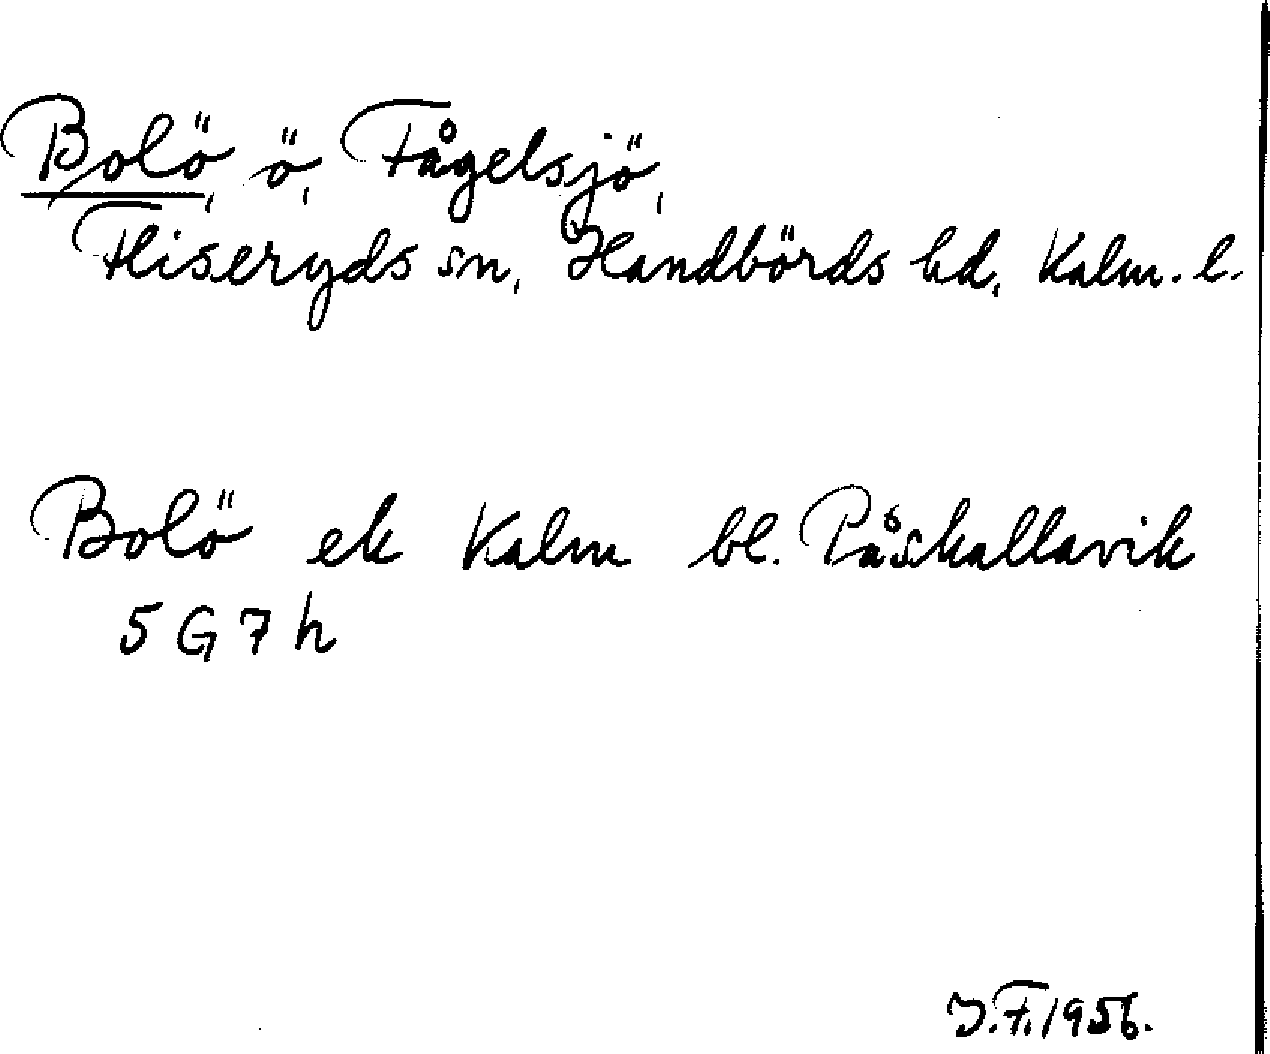 Bolö, ö, Fågelsjö,
Fliseryds sn, Handbörds hd, Kalm. l.
Bolö ek Kalm bl. Påskallavik
5 G 7 h
J.F. 1956.